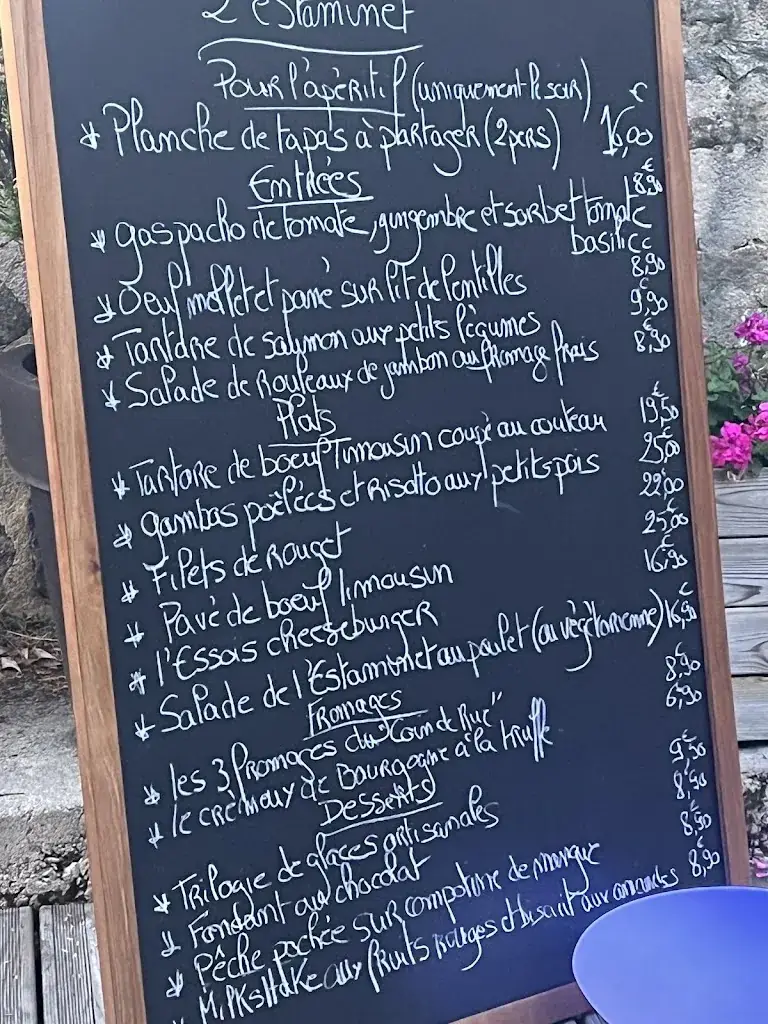 L'estaminet
Pour l'apéritif (uniquement le soir)
* Planche de tapas à partager (2 pers) 16,00€
Entrées
* Gaspacho de tomate, gingembre et sorbet tomate 8,90€
basilic
* Oeuf mollet et pané sur lit de lentilles 8,90
* Tartare de saumon aux petits légumes 9,90€
* Salade de Rouleaux de jambon au fromage frais 8,90€
Plats
* Tartare de boeuf Limousin coupé au couteau 19,50€
* Gambas poêlées et Risotto aux petits pois 25,00€
* Filets de Rouget 22,00€
* Pavé de boeuf limousin 25,00€
* l'Essois cheeseburger 16,90€
* Salade de l'Estaminet au poulet (ou végétarienne) 16,90€
Fromages
* les 3 fromages du "Coin de Rue" 8,90€
* le crèmeux de Bourgogne à la truffe 6,90€
Desserts
* Trilogie de glaces artisanales 9,50€
* Fondant au chocolat 8,90€
* Pêche pochée sur compotine de mangue 8,90€
* Milkshake aux fruits rouges et biscuit aux amandes 8,90€